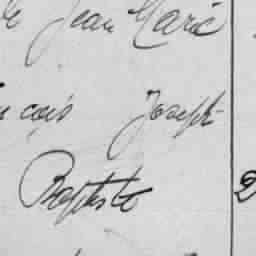 Jean Marie
çois Joseph
Baptiste 2